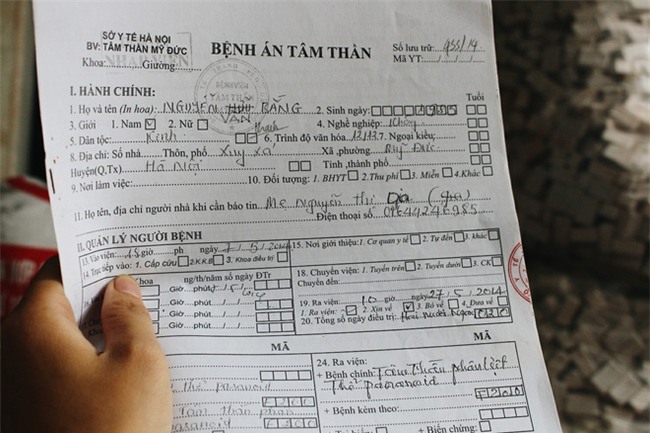 SỞ Y TẾ HÀ NỘI
BV: TÂM THẦN MỸ ĐỨC
Khoa: Giường:
BỆNH ÁN TÂM THẦN
Số lưu trữ: 955/14
Mã YT:
BỆNH VIỆN
TÂM THẦN
I. HÀNH CHÍNH:
Tuổi
1. Họ và tên (In hoa): NGUYỄN VĂN BẰNG 2. Sinh ngày:
3. Giới 1. Nam 2. Nữ 4. Nghề nghiệp: Không
5. Dân tộc: Kinh 6. Trình độ văn hóa 12/12 7. Ngoại kiều:
8. Địa chỉ: Số nhà Thôn, phố Xuy xá Xã, phường Mỹ Đức
Huyện(Q,Tx) Hà Nội Tỉnh, thành phố
9. Nơi làm việc: 10. Đối tượng: 1. BHYT 2. Thu phí 3. Miễn 4.Khác
11. Họ tên, địa chỉ người nhà khi cần báo tin Mẹ nguyễn thị
Điện thoại số
II. QUẢN LÝ NGƯỜI BỆNH
13. Vào viện: 15 giờ ph ngày 7.5.2014
14. Trực tiếp vào: 1. Cấp cứu 2.K.K.B 3. Khoa điều trị
15. Nơi giới thiệu: 1. Cơ quan y tế 2. Tự đến 3. khác
Khoa ng/th/năm số ngày ĐTr
Giờ phút
Giờ phút
Giờ phút
Giờ phút
18. Chuyển viện: 1. Tuyến trên 2. Tuyến dưới 3. CK
Chuyển đến:
19. Ra viện: 10 giờ ngày 27.5.2014
1. Ra viện: 2. Xin về 3. Bỏ về 4. Đưa về
20. Tổng số ngày điều trị:
MÃ
MÃ
24. Ra viện:
+ Bệnh chính: Tâm thần phân liệt
Thể paranoid
F200
+ Bệnh kèm theo:
F200
+ Biến chứng: